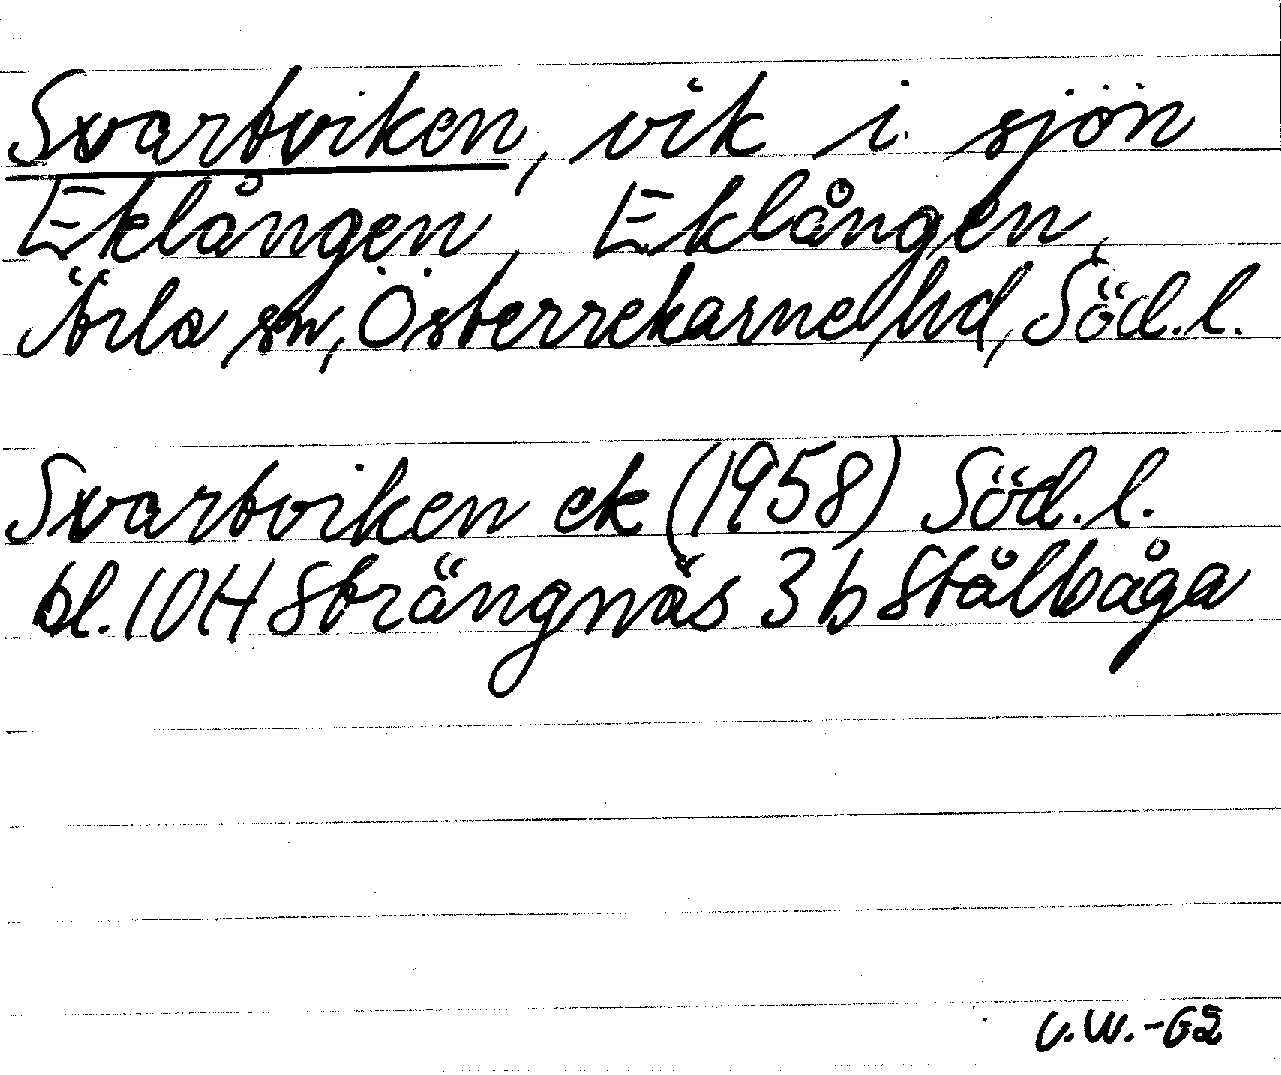 Svartviken, vik i sjön
Eklången, Eklången,
Ärla sn, Österrekarne hd, Söd.l.
Svartviken ek (1958) Söd.l.
bl. 10H Strängnäs 3b Stålbåga
U.W.-62